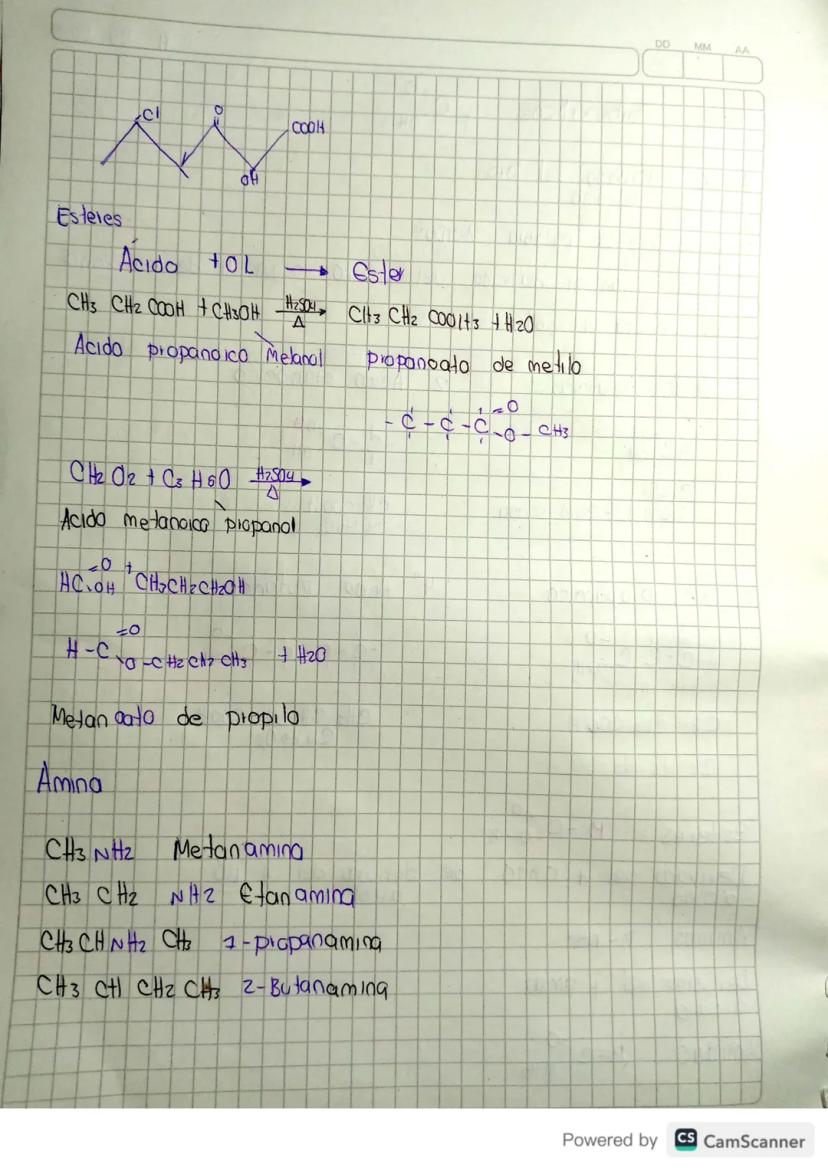 DD MM AA
Cl
O
COOH
OH
Esteres
Ácido + OL → Ester
CH3 CH2 COOH + CH3OH H2SO4 Δ → CH3 CH2 COOCH3 + H2O
Acido propanoico Metanol propanoato de metilo
- C - C - C =O -O- CH3
CH2 O2 + C3 H6O H2SO4 Δ →
Acido metanoico propanol
HC =O OH + CH3CH2CH2OH
H-C =O O-CH2 CH2 CH3 + H2O
Metanoato de propilo
Amina
CH3 NH2 Metanamina
CH3 CH2 NH2 Etanamina
CH3 CH NH2 CH3 1-propanamina
CH3 CH CH2 CH3 2-Butanamina
Powered by CS CamScanner